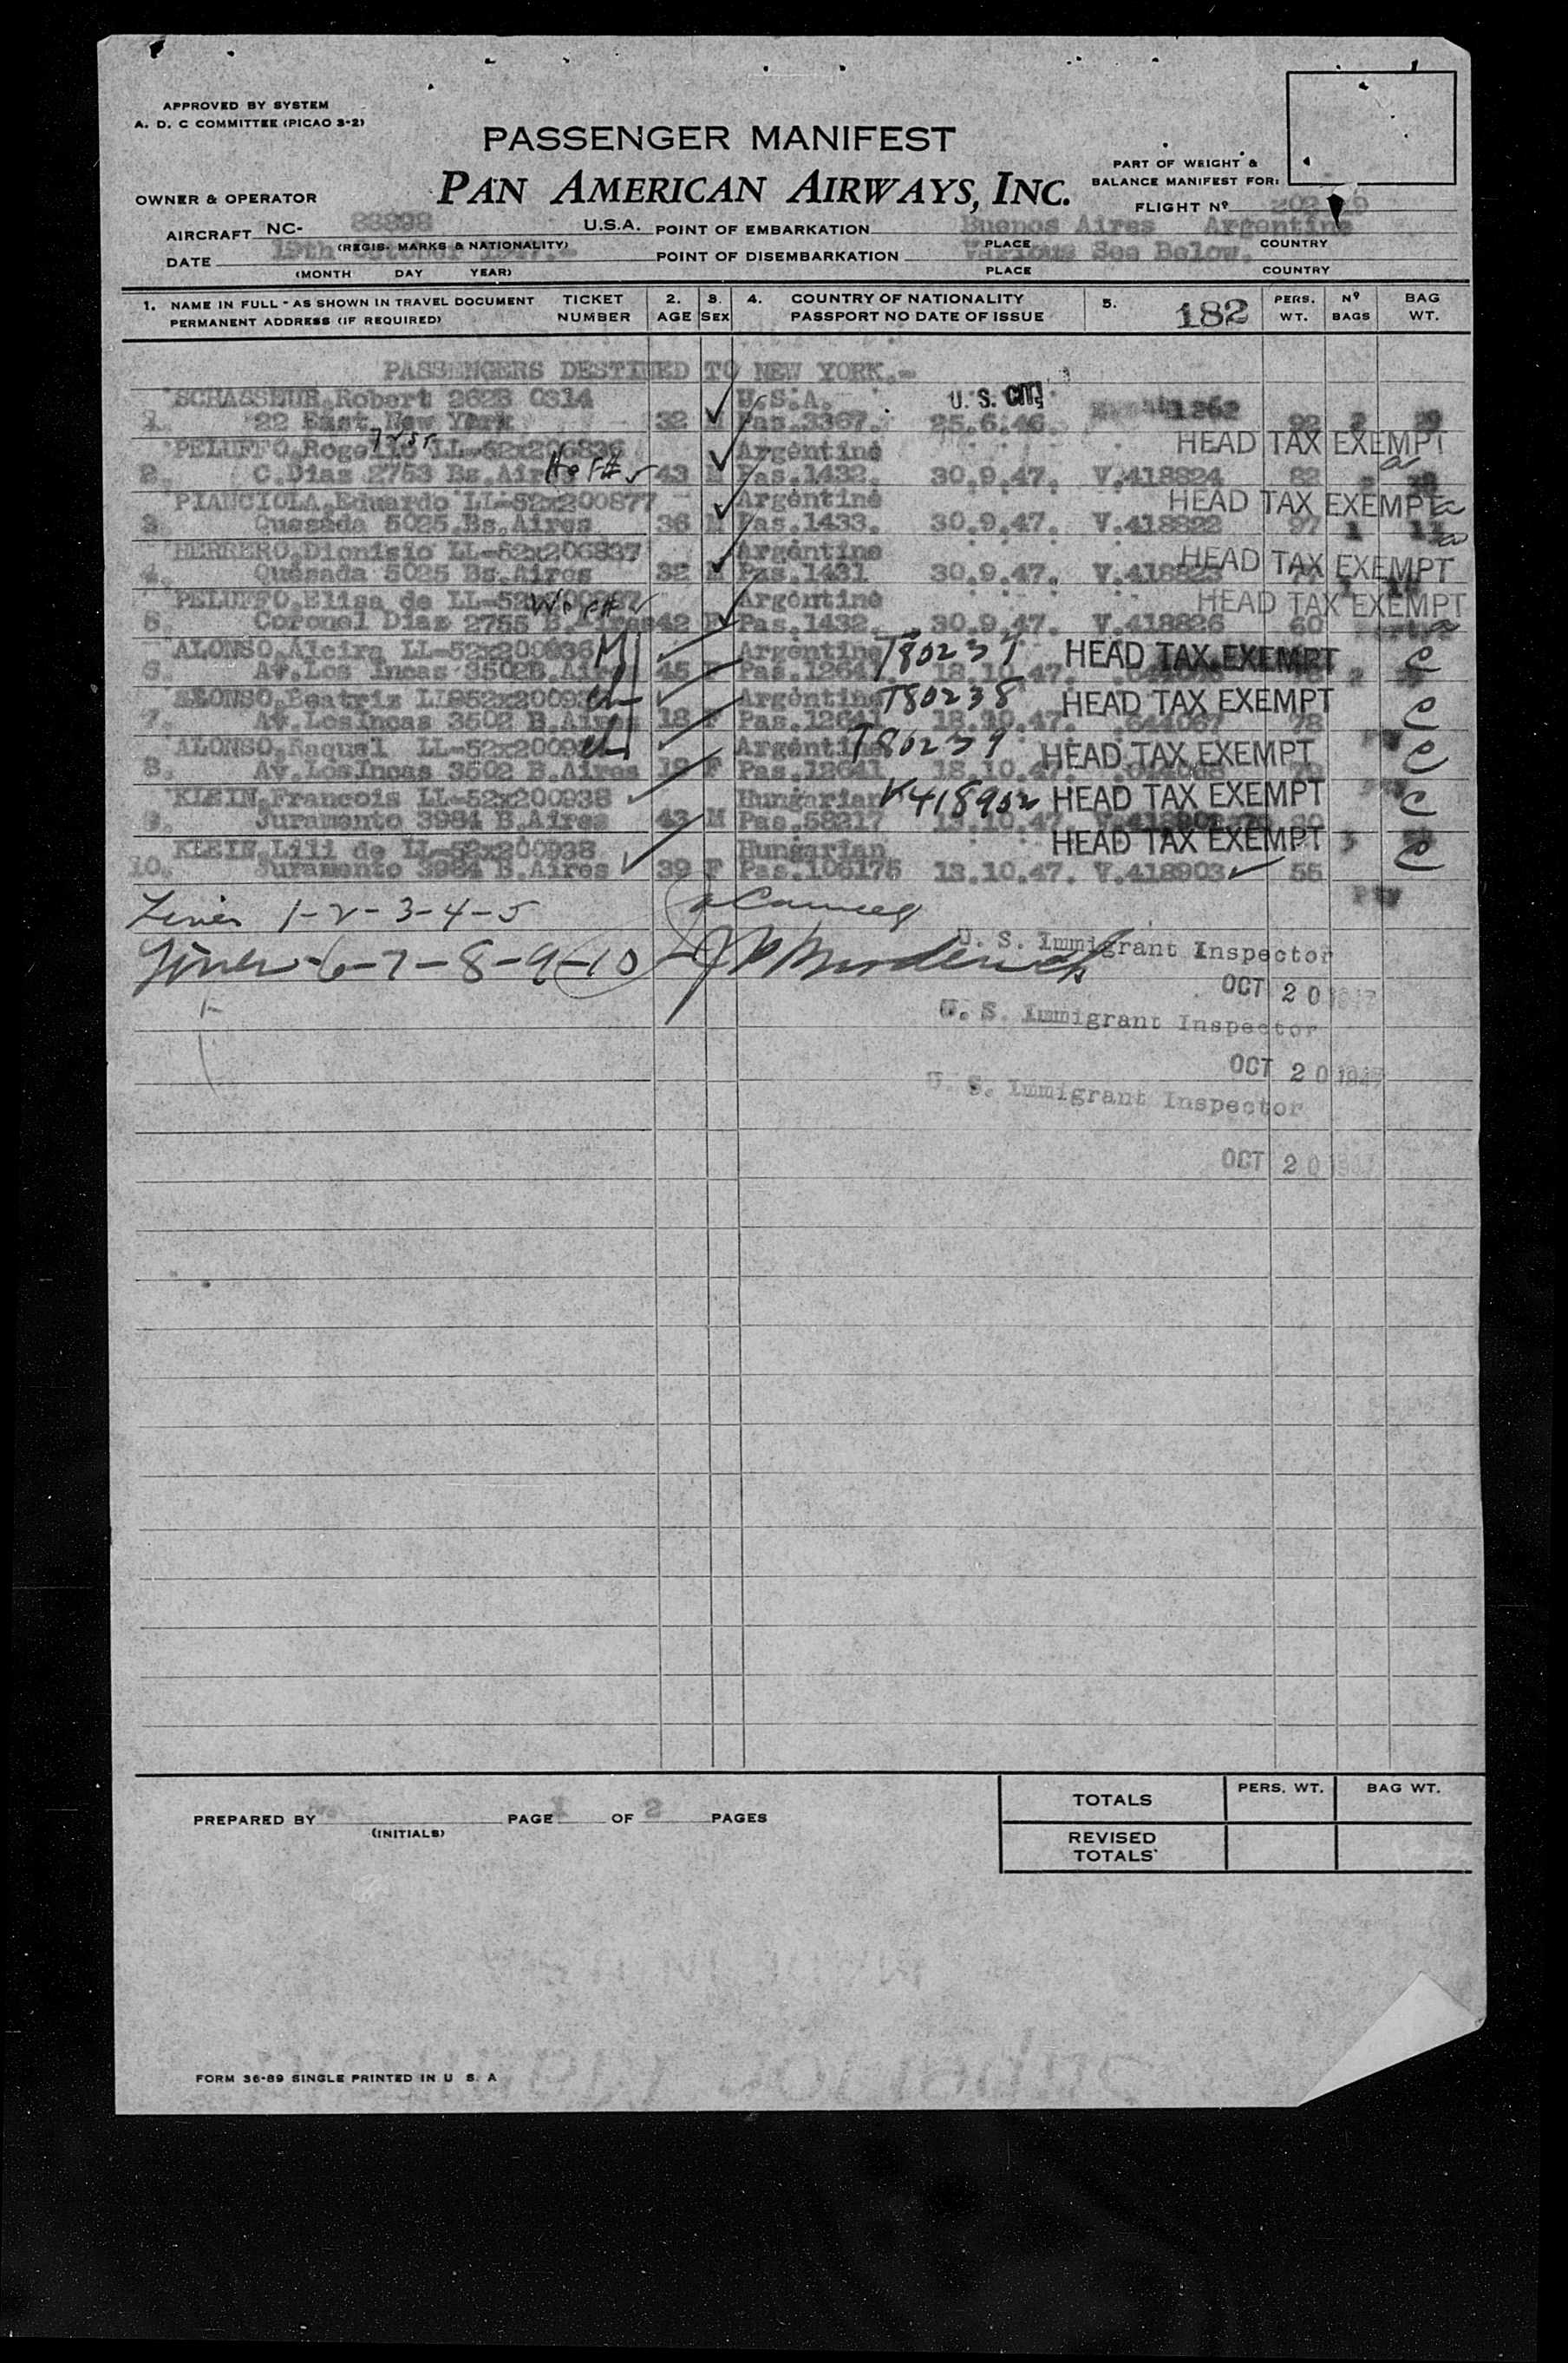 APPROVED BY SYSTEM
A. D. C COMMITTEE (PICAO 3-2)
PASSENGER MANIFEST
PAN AMERICAN AIRWAYS, INC.
PART OF WEIGHT &
BALANCE MANIFEST FOR:
OWNER & OPERATOR
FLIGHT Nº
AIRCRAFT NC- 88898 U.S.A. POINT OF EMBARKATION Buenos Aires Argentine
(REGIS. MARKS & NATIONALITY) PLACE COUNTRY
DATE 19th October 1947.- POINT OF DISEMBARKATION Various See Below.
(MONTH DAY YEAR) PLACE COUNTRY
1. NAME IN FULL - AS SHOWN IN TRAVEL DOCUMENT TICKET 2. 3. 4. COUNTRY OF NATIONALITY 5. 182 PERS. Nº BAG
PERMANENT ADDRESS (IF REQUIRED) NUMBER AGE SEX PASSPORT NO DATE OF ISSUE WT. BAGS WT.
PASSENGERS DESTINED TO NEW YORK.-
SCHASSEUR, Robert 2628 0314 U.S.A. U.S. CIT.
1. 22 East New York 32 M Pas.3367. 25.6.46. 1262 92 2
PELUFFO, Rogelio LL-52x206836 Argentine HEAD TAX EXEMPT
2. C.Diaz 2753 Bs.Aires 43 M Pas.1432. 30.9.47. V.418824 82
PIANCIOLA, Eduardo LL-52x200877 Argentine HEAD TAX EXEMPT
3. Quesada 5025 Bs.Aires 36 M Pas.1433. 30.9.47. V.418822 97 1
HERRERO, Dionisio LL-52x206837 Argentine HEAD TAX EXEMPT
4. Quesada 5025 Bs.Aires 32 M Pas.1431 30.9.47. V.418823
PELUFFO, Elisa de Argentine HEAD TAX EXEMPT
5. Coronel Diaz 2755 B.Aires 42 F Pas.1432. 30.9.47. V.418826 60
ALONSO, Alcira LL-52x200936 Argentine T80237 HEAD TAX EXEMPT
6. Av.Los Incas 3502B.Aires 45 F Pas.12641. 18.10.47. 2 C
ALONSO, Beatriz Argentine T80238 HEAD TAX EXEMPT
7. Av.LosIncas 3502 B.Aires 18 F Pas.12641 18.10.47. .644067 78 C
ALONSO, Raquel Argentine T80239 HEAD TAX EXEMPT
8. Av.LosIncas 3502 B.Aires F Pas.12641 18.10.47. C
KLEIN, Francois LL-52x200938 Hungarian V418902 HEAD TAX EXEMPT
9. Juramento 3984 B.Aires 43 M Pas.58217 13.10.47. C
KLEIN, Lili de LL-52x200938 Hungarian HEAD TAX EXEMPT
10. Juramento 3984 B.Aires 39 F Pas.106175 13.10.47. V.418903 55 C
Lines 1-2-3-4-5
Lines-6-7-8-9-10
U. S. Immigrant Inspector
OCT 20 1947
U. S. Immigrant Inspector
OCT 20 1947
U. S. Immigrant Inspector
OCT 20 1947
TOTALS PERS. WT. BAG WT.
PREPARED BY PAGE 1 OF 2 PAGES
(INITIALS)
REVISED
TOTALS
FORM 36-89 SINGLE PRINTED IN U S. A